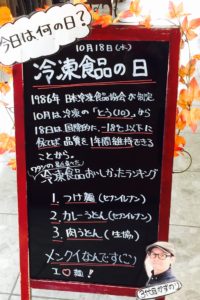 今日は何の日?
10月18日(水)
冷凍食品の日
1986年 日本冷凍食品協会が制定
10月は冷凍の「とう(10)」から
18日は国際的に、-18℃以下に
保てば品質を1年間維持できる
ことから。
冷凍食品おいしかったランキング
1. つけ麺(セブンイレブン)
2. カレーうどん(セブンイレブン)
3. 肉うどん(生協)
メンクイなんですに
I ♡ 麺!
2代目かずのり